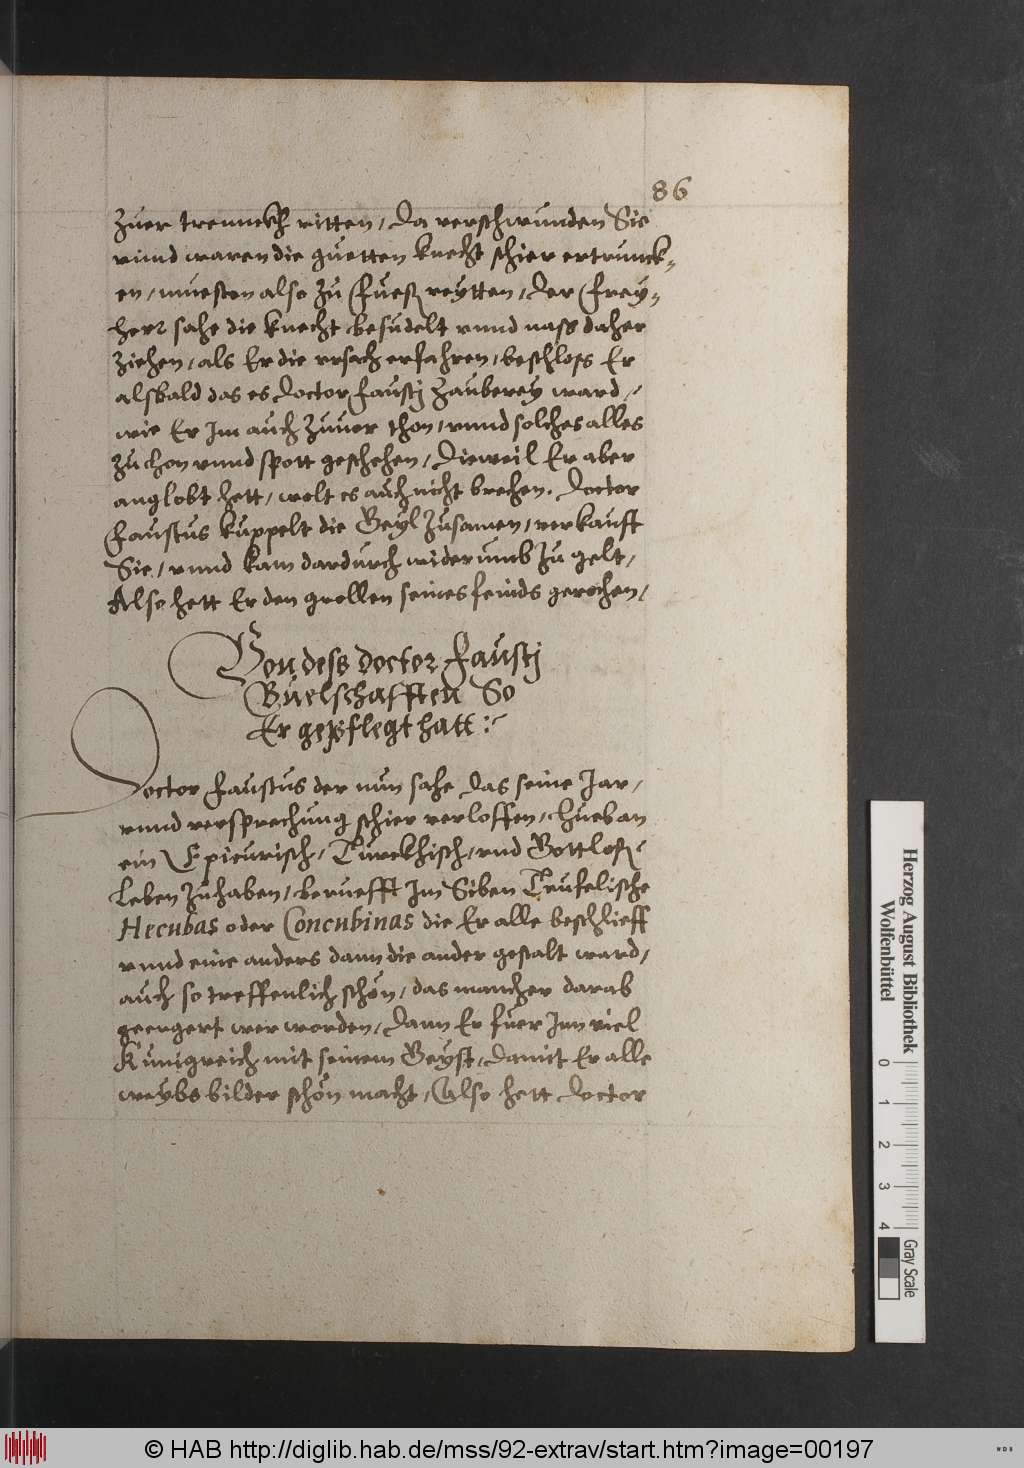 86
zuer trennckh ritten, da verschwunden Sie
vnnd waren die guetten knecht schier ertrunck-
en, muesten also zu Fuesz reytten, der Frey-
herr sahe die knecht besudelt vnnd nasz daher
ziehen, als Er die vrsach erfahren, beschloss Er
alsbald das es doctor Faustj Zauberey ward,
wie Er Im auch zuuor thon, vnnd solches alles
zu hon vnnd spott geschehen, Dieweil Er aber
anglobt hett, wolt es auch nicht brechen. Doctor
Faustus kuppelt die Geyl zusamen, verkaufft
Sie, vnnd kam dardurch widerumb zu gelt,
Also hett Er den grollen seines feinds gerochen,
Von dess doctor Faustj
Buelschafften So
Er gepflegt hatt:
Doctor Faustus der nun sahe das seine Jar,
vnnd versprechung schier verloffen, hueb an
ein Epicurisch, Türckhisch, vnd Gottlosz
Leben zuhaben, berüefft Im Siben Teufelische
Hecubas oder Concubinas die Er alle beschlieff
vnnd eine anders dann die ander gestalt ward,
auch so treffenlich schön, das mancher darab
geergert wer worden, Dann Er fuer Inn viel
Künigreich mit seinem Geyst, damit Er alle
weybs bilder schön macht, Also hett Doctor
Herzog August Bibliothek
Wolfenbüttel
0 1 2 3 4
Gray Scale
© HAB http://diglib.hab.de/mss/92-extrav/start.htm?image=00197
WDB